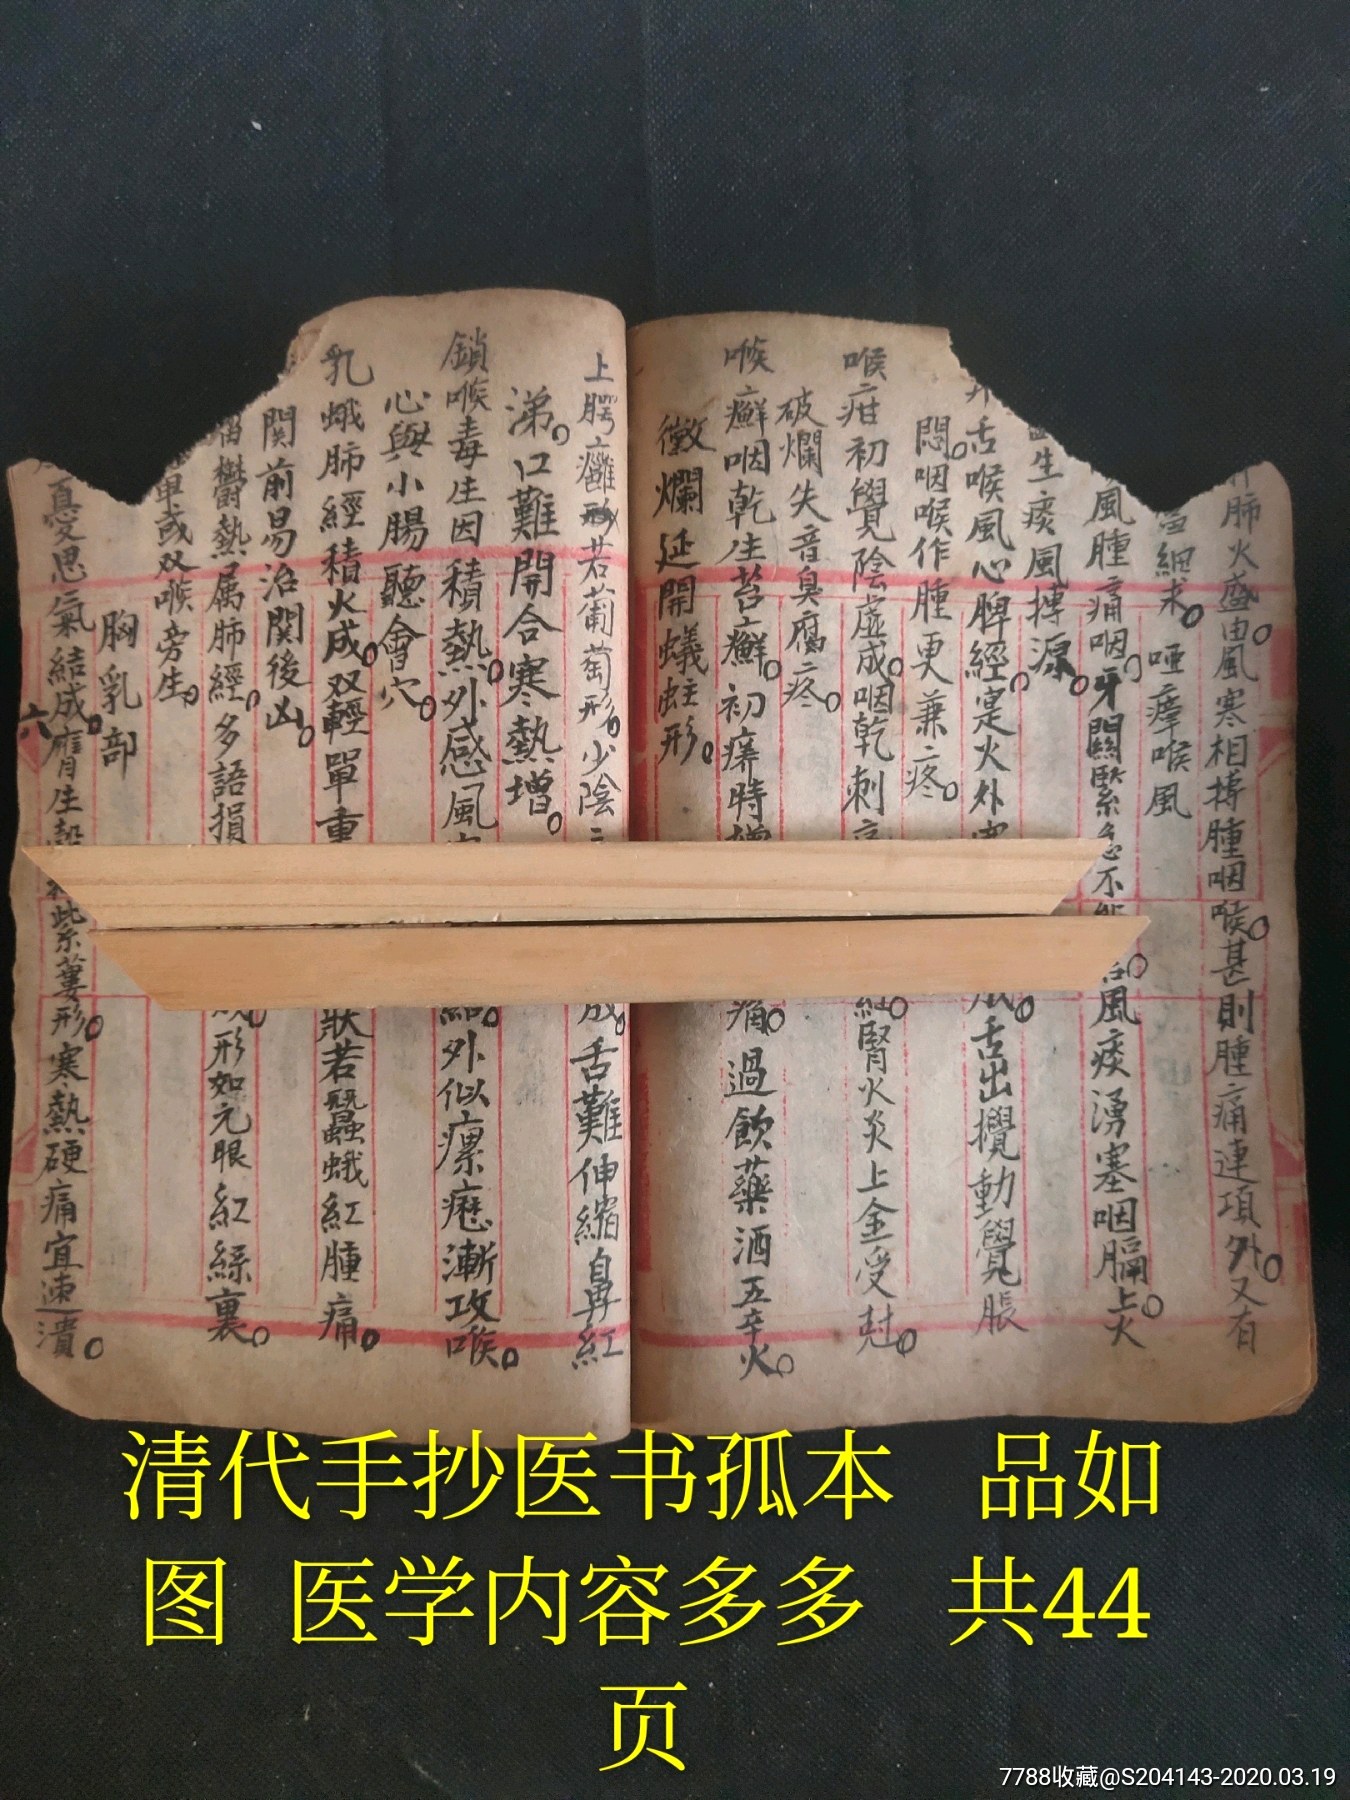 肺火盛由風寒相搏腫咽喉甚則腫痛連項外又有
細求 啞瘴喉風
風腫痛咽牙關緊急不 風痰湧塞咽膈上火
生痰風搏源
舌喉風心脾經寔火外 舌出攪動覺脹
悶咽喉作腫更兼疼
喉疳初覺陰虛成咽乾刺 紅腎火炎上金受尅
破爛失音臭腐疼
喉癬咽乾生苔癬初癢時 痛過飲藥酒五辛火
黴爛延開蟻蛀形
上腭癰形若葡萄形少陰三 成舌難伸縮鼻紅
涕口難開合寒熱增
鎖喉毒生因積熱外感風 結外似瘰癧漸攻喉
心與小腸聽會穴
乳蛾肺經積火成双輕單重 狀若蠶蛾紅腫痛
関前易治関後凶
鬱熱属肺經多語損 形如元眼紅絲裏
單或双喉旁生
胸乳部
憂思氣結成膺生 紫蔞形寒熱硬痛宜速潰
六
清代手抄医书孤本 品如
图 医学内容多多 共44
页
7788收藏@S204143-2020.03.19